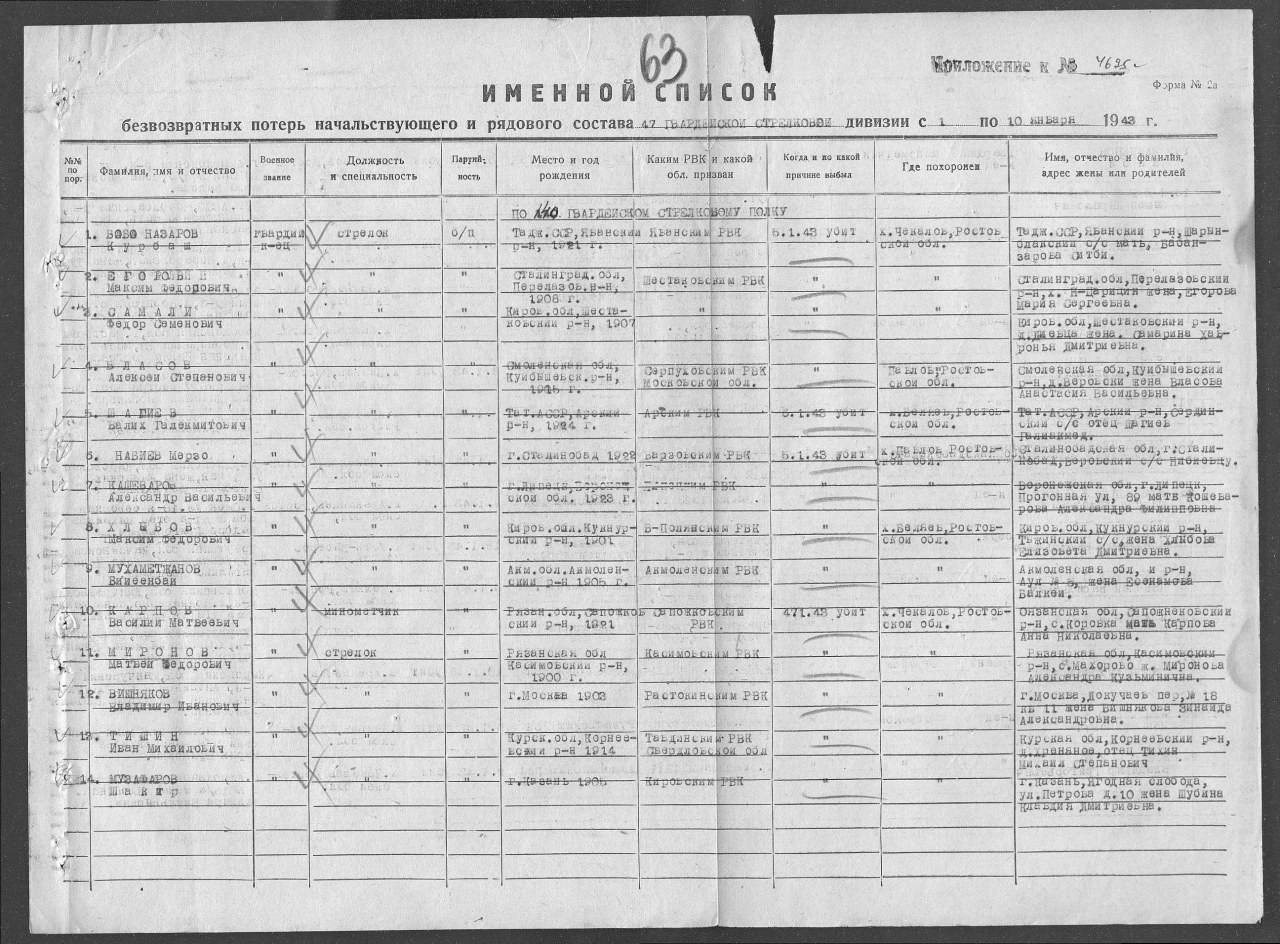 63
Приложение к № 4695с
Форма № 2а
ИМЕННОЙ СПИСОК
безвозвратных потерь начальствующего и рядового состава 47 ГВАРДЕЙСКОЙ СТРЕЛКОВОЙ дивизии с 1 по 10 января 1943 г.
№№ по пор. Фамилия, имя и отчество Военное звание Должность и специальность Партийность Место и год рождения Каким РВК и какой обл. призван Когда и по какой причине выбыл Где похоронен Имя, отчество и фамилия, адрес жены или родителей
ПО 140 ГВАРДЕЙСКОМ СТРЕЛКОВОМУ ПОЛКУ
1. БОБО НАЗАРОВ гвардии стрелок б/п Тадж.ССР,Яванский Яванским РВК 5.1.43 убит х.Чекалов,Ростов Тадж.ССР,Яванский р-н,
Курбаш к-ец р-н, 1921 г. ской обл. с/с мать,
2. ЕГОРОВ " " " Сталинград.обл, Шестаковским РВК " " Сталинград.обл,Перелазовский
Максим Федорович Перелазов.р-н, р-н,х. Н-Царицин жена,Егорова
1908 г. Мария Сергеевна.
3. САМАЛИ " " " Киров.обл,Шеста- " " "
Федор Семенович ковский р-н, 1907 Киров.обл,Шестаковский р-н,
жена. Самарина Хав-
ронья Дмитриевна.
4. ВЛАСОВ " " " Смоленская обл, Серпуховским РВК " Павлов,Ростов- Смоленская обл,Куйбышевский
Алексей Степанович Куйбышевск.р-н, Московской обл. ской обл. р-н,д.Веровски жена Власова
1915 г. Анастасия Васильевна.
5. ШАГИЕВ " " " Тат.АССР,Арский Арским РВК 5.1.43 убит х.Беляев,Ростов- Тат.АССР,Арский р-н,Сердин-
Валих Галекмитович р-н, 1924 г. ской обл. ский с/с отец Шагиев
Галиакмед.
6. НАБИЕВ Мерзо " " " г.Сталинобад 1922 Варзовским РВК 5.1.43 убит х.Павлов Ростов- Сталинобадская обл,г.Стали-
ской обл. нобад, с/с
7. КАШЕВАРОВ " " " г.Липецк,Воронеж Липецким РВК " " Воронежская обл,г.Липецк,
Александр Васильевич ской обл. 1923 г. Прогонная ул, 89 мать Кошева-
рова Александра Филипповна
8. ХЛЫБОВ " " " Киров.обл.Кукнур- В-Полянским РВК " х.Беляев,Ростов- Киров.обл,Кукнурский р-н,
Максим Федорович ский р-н, 1901 ской обл. Тажинский с/с,жена Хлыбова
Елизовета Дмитриевна.
9. МУХАМЕТЖАНОВ " " " Акм.обл.Акмолен- Акмоленским РВК " " Акмоленская обл, и р-н,
ский р-н 1905 г. Аул № 5, жена Есенамова
Балкей.
10. КАРПОВ " минометчик " Рязан.обл,Сапожков Сапожковским 471.43 убит х.Чекалов,Ростов- Оязанская обл,Сапожнековский
Василий Матвеевич ский р-н, 1921 РВК. ской обл. р-н,с.Коровка мать Карпова
Анна Николаевна.
11. МИРОНОВ " стрелок " Рязанская обл Касимовским РВК " " Рязанская обл,Касимовским
Матвей Федорович Касимовский р-н, р-н,с.Махорово ж. Миронова
1900 г. Александра Кузьминична.
12. ВИШНЯКОВ " " " г.Москва 1903 Растокинским РВК " " г.Москва,Докучаев пер,№ 18
Владимир Иванович кв 11 жена Вишнякова Зинаида
Александровна.
13. ТИШИН " " " Курск.обл,Корнее- Тавдинским РВК " " Курская обл,Корнеевский р-н,
Иван Михайлович вский р-н 1914 Свердловской обл отец Тихин
Михаил Степанович
14. МУЗАФАРОВ " " " г.Казань 1905 Кировским РВК " г.Казань,Ягодная слобода,
Шакир ул.Петрова д.10 жена Шубина
Клавдия Дмитриевна.